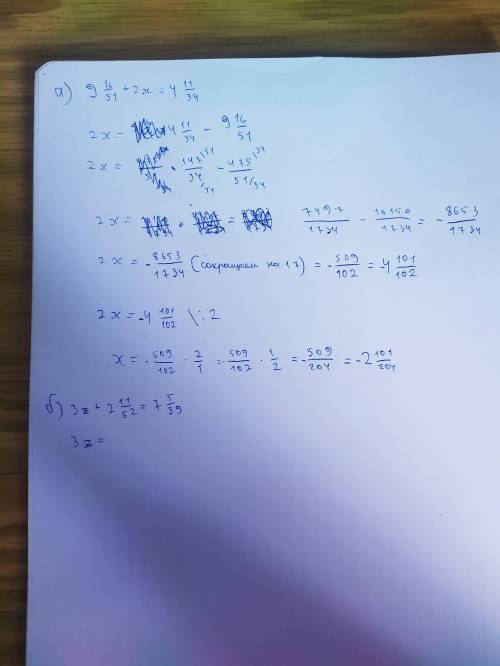 а) 9 16/51 + 2x = 4 11/34
2x = 4 11/34 - 9 16/51
2x = 147/34 - 475/51
2x = 7497/1734 - 16150/1734 = - 8653/1734
2x = - 8653/1734 (сокращаем на 17) = - 509/102 = -4 101/102
2x = -4 101/102 \ : 2
x = - 509/102 : 2/1 = - 509/102 · 1/2 = - 509/204 = -2 101/204
б) 3z + 2 11/52 = 7 5/39
3z =